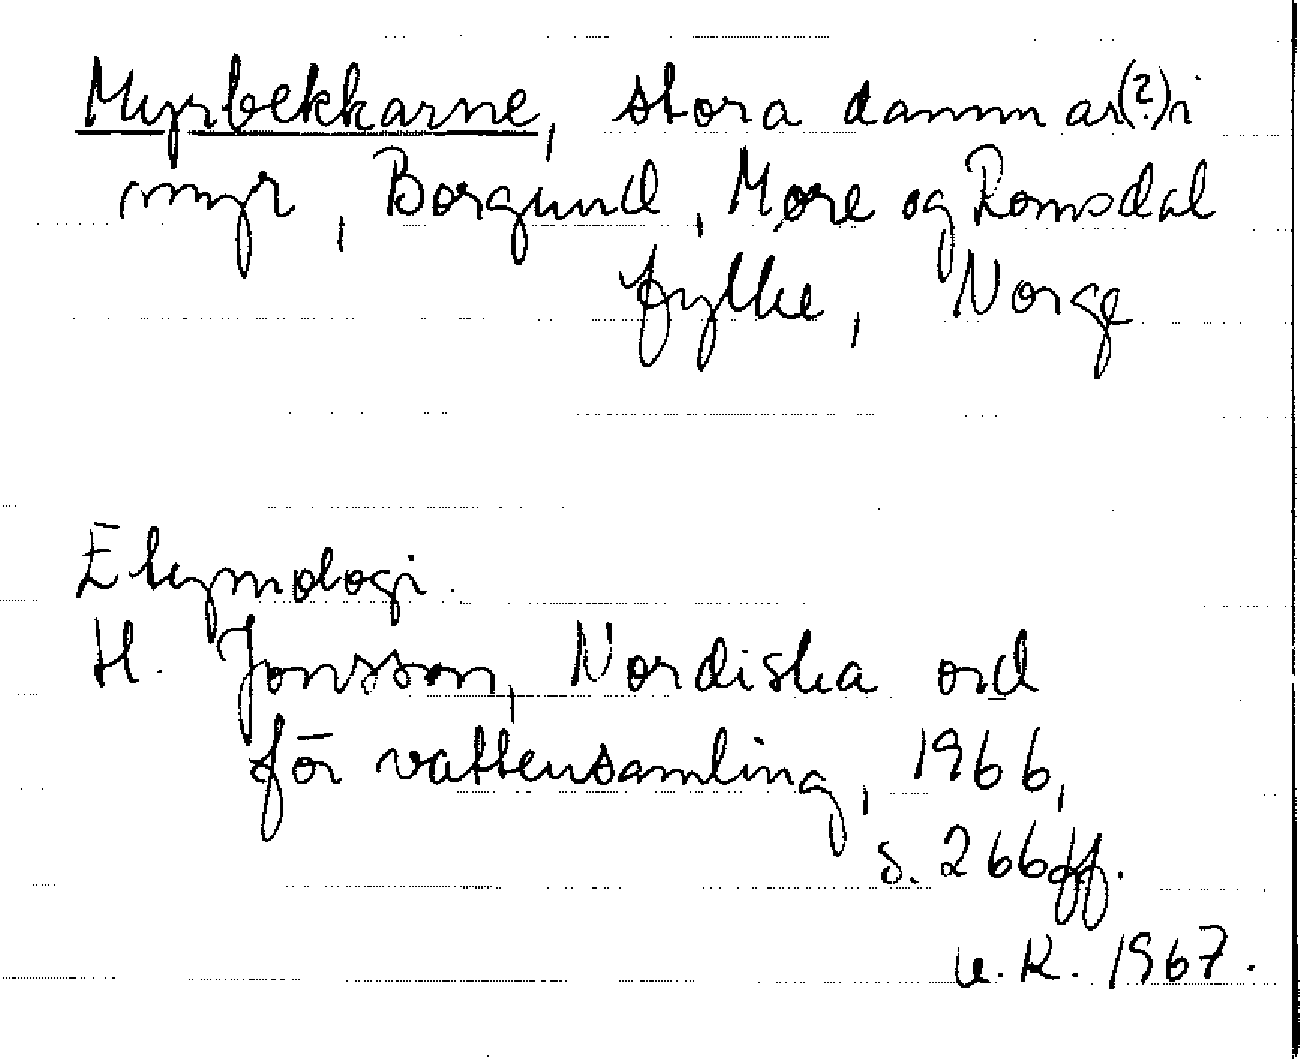 Myrbekkarne, stora dammar(?) i
myr, Borgund, Møre og Romsdal
fylke, Norge
Etymologi.
H. Jonsson, Nordiska ord
för vattensamling, 1966,
s. 266ff.
u. K. 1967.